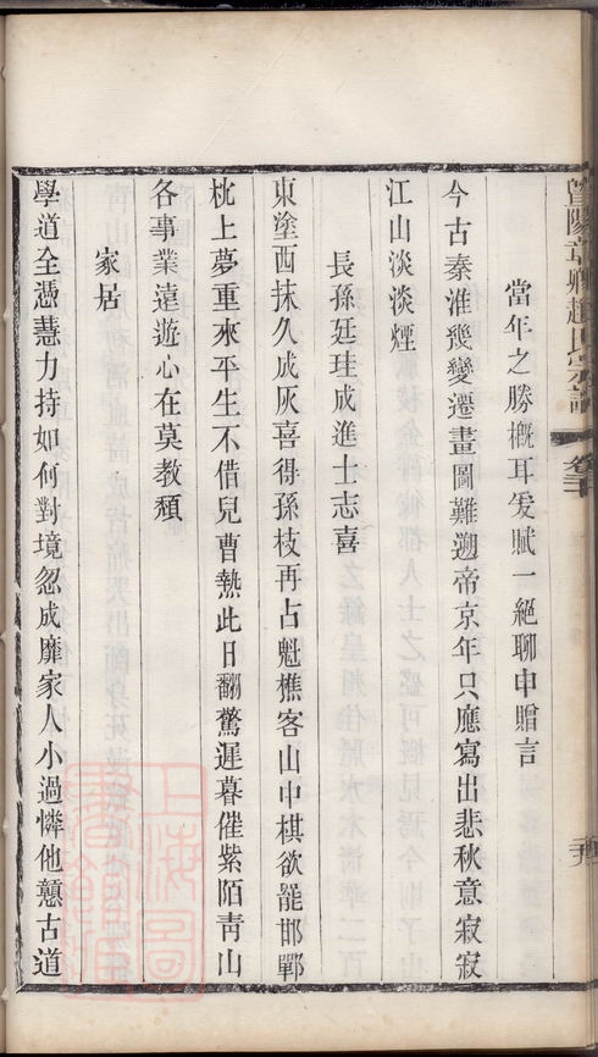 暨陽章卿趙氏宗譜 卷二十
當年之勝概耳爰賦一絕聊申贈言
今古秦淮幾變遷畫圖難遡帝京年只應寫出悲秋意寂寂
江山淡淡煙
長孫廷珪成進士志喜
東塗西抹久成灰喜得孫枝再占魁樵客山中棋欲罷邯鄲
枕上夢重來平生不借兒曹熱此日翻驚遲暮催紫陌靑山
各事業遠遊心在莫教頹
家居
學道全憑慧力持如何對境忽成靡家人小過憐他戇古道
上海圖書館藏